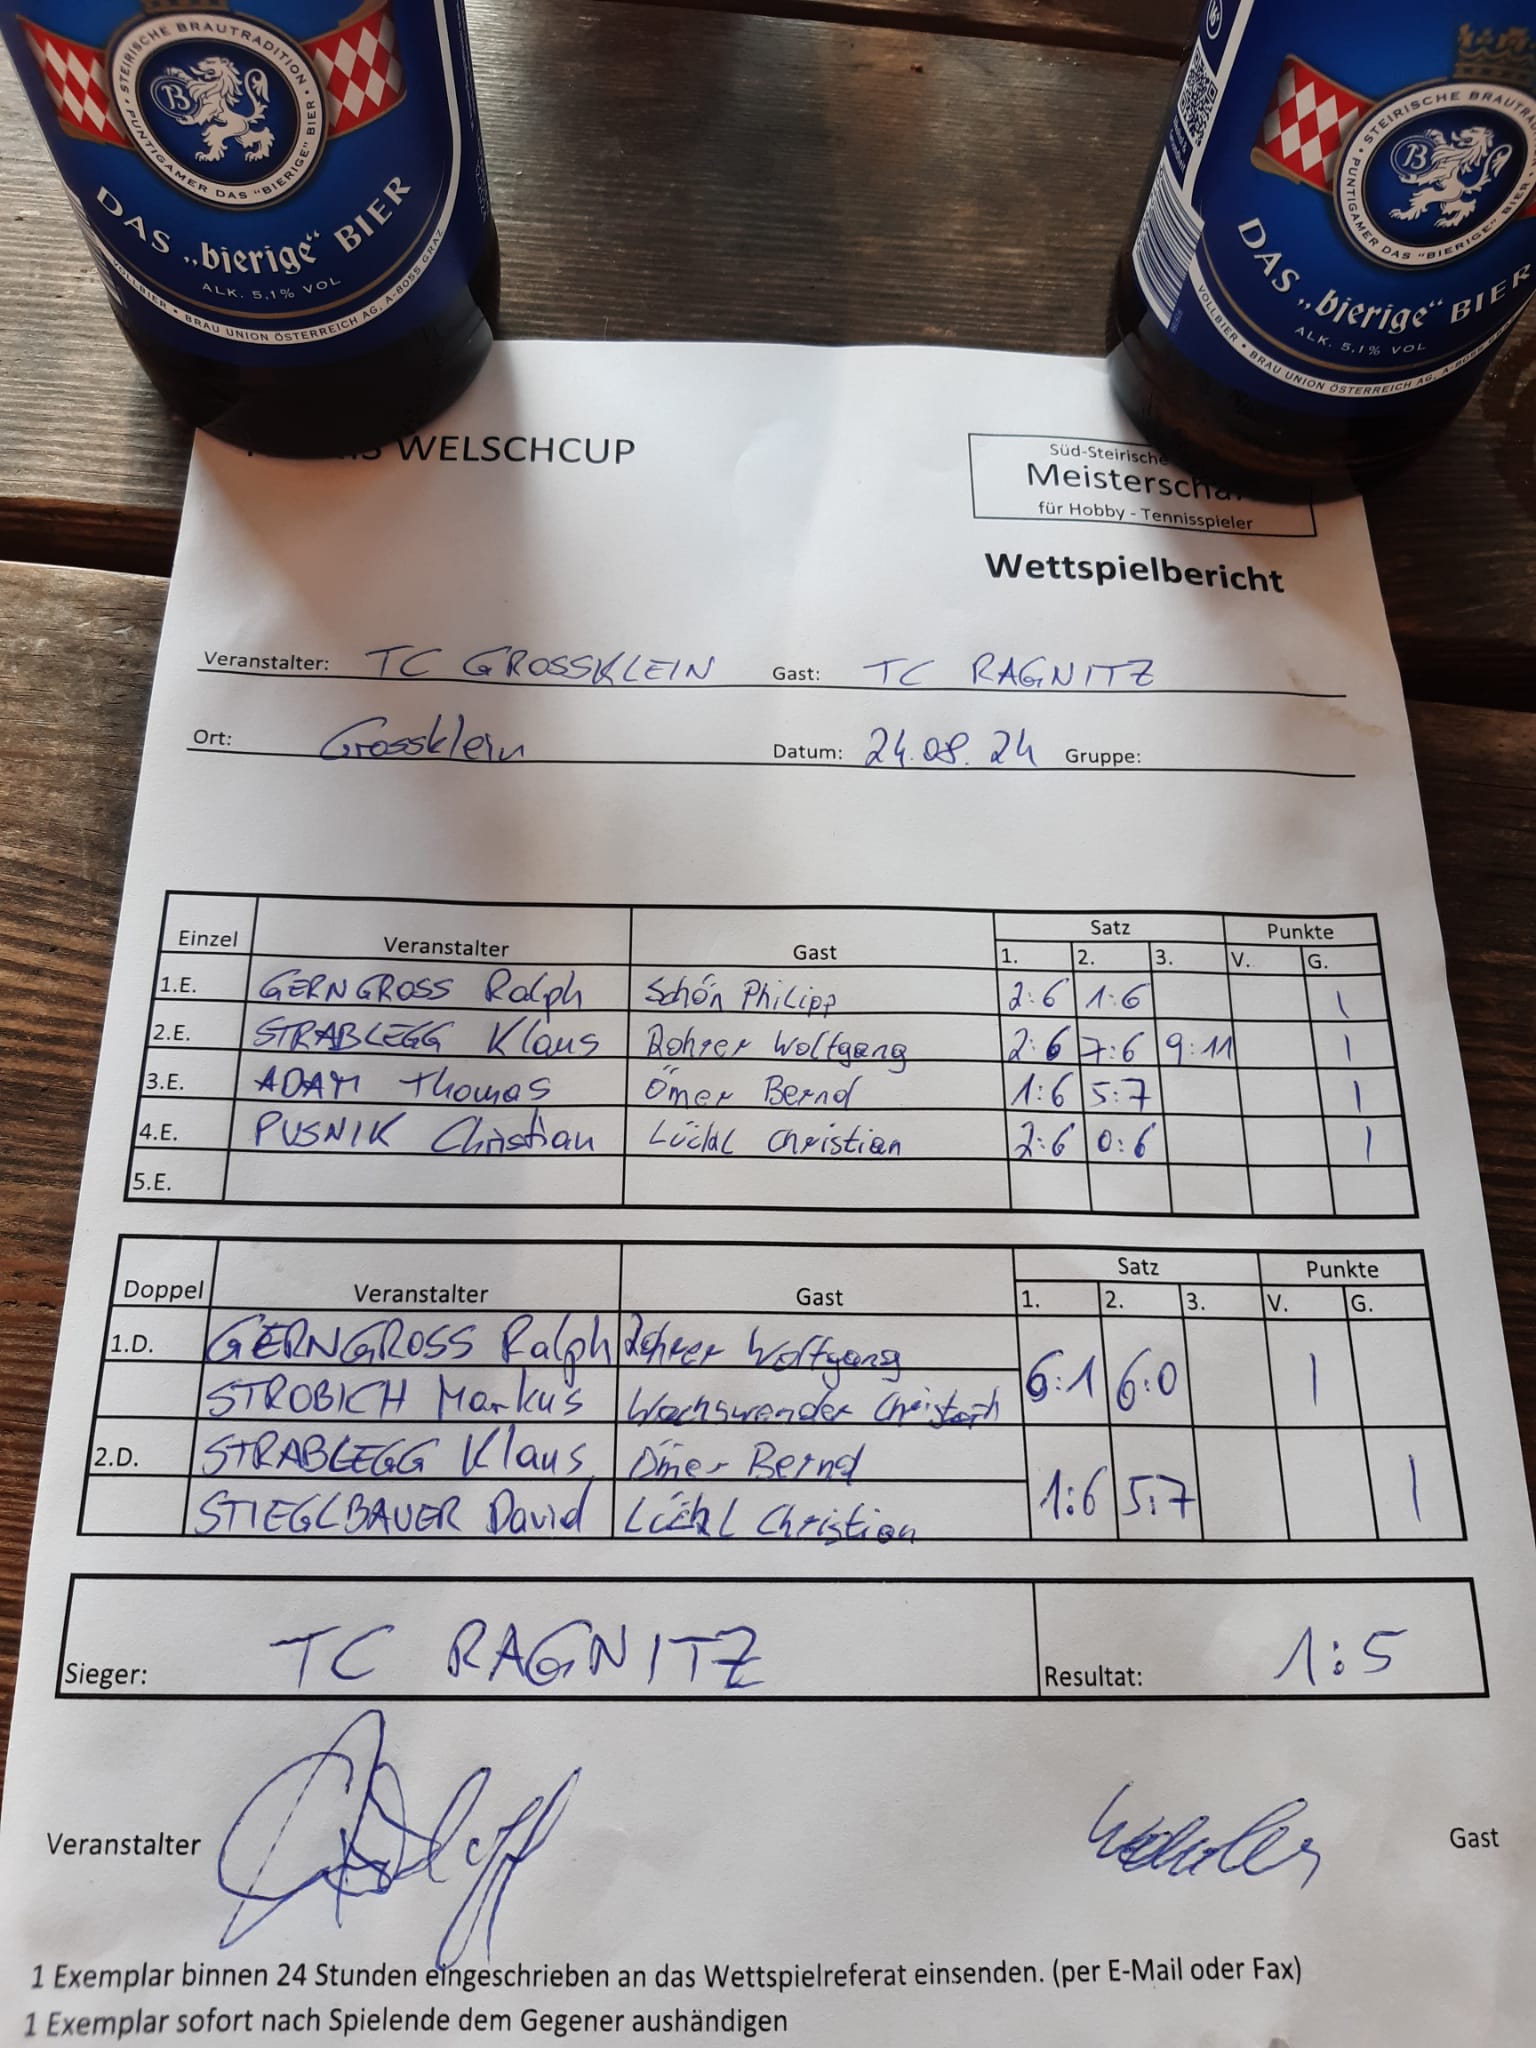 STEIRISCHE BRAUTRADITION • PUNTIGAMER DAS "BIERIGE" BIER •
B
DAS „bierige“ BIER
ALK. 5,1% VOL
VOLLBIER • BRAU UNION ÖSTERREICH AG, A-8055 GRAZ
STEIRISCHE
PUNTIGAMER DAS "BIERIGE" BIER
B
DAS „bierige“ BIER
ALK. 5,1% VOL
VOLLBIER • BRAU UNION ÖSTERREICH AG,
WELSCHCUP
Süd-Steirische
für Hobby - Tennisspieler
Wettspielbericht
Veranstalter: TC GROSSKLEIN Gast: TC RAGNITZ
Ort: Grossklein Datum: 24.08.24 Gruppe:
Einzel Veranstalter Gast Satz Punkte
1. 2. 3. V. G.
1.E. GERNGROSS Ralph Schön Philipp 2:6 1:6 1
2.E. STRABLEGG Klaus Rohrer Wolfgang 2:6 7:6 9:11 1
3.E. ADAM Thomas Ömer Bernd 1:6 5:7 1
4.E. PUSNIK Christian Lückl Christian 2:6 0:6 1
5.E.
Doppel Veranstalter Gast Satz Punkte
1. 2. 3. V. G.
1.D. GERNGROSS Ralph Rohrer Wolfgang 6:1 6:0 1
STROBICH Markus Wachswender Christoph
2.D. STRABLEGG Klaus Ömer Bernd 1:6 5:7 1
STIEGLBAUER David Lückl Christian
Sieger: TC RAGNITZ Resultat: 1:5
Veranstalter Gast
1 Exemplar binnen 24 Stunden eingeschrieben an das Wettspielreferat einsenden. (per E-Mail oder Fax)
1 Exemplar sofort nach Spielende dem Gegener aushändigen